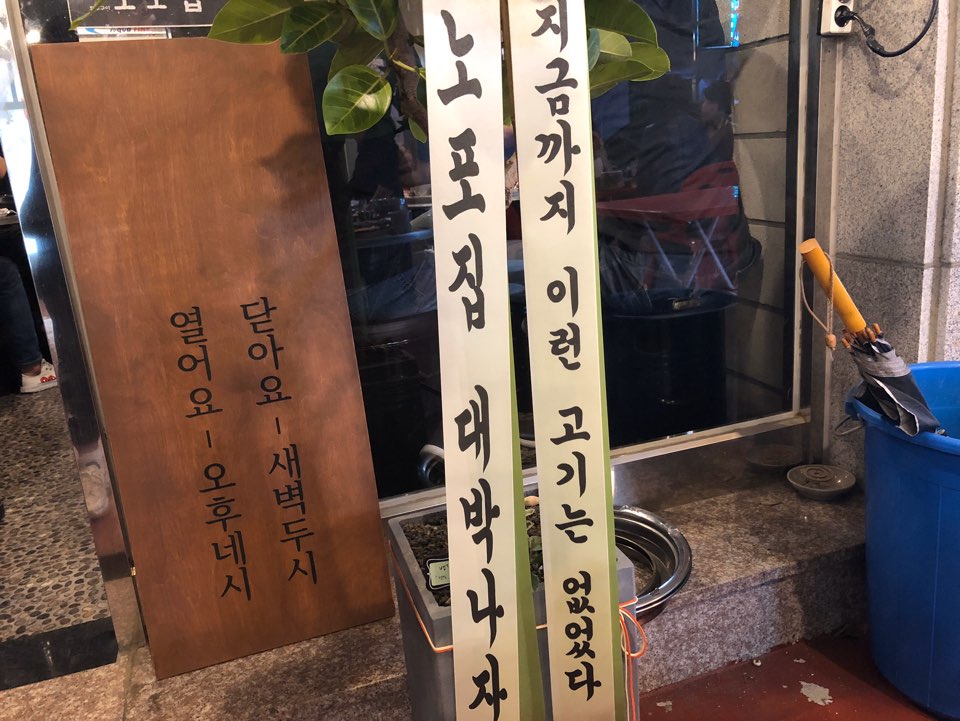 열어요-오후네시
닫아요-새벽두시
노포집 대박나자
지금까지 이런 고기는 없었다